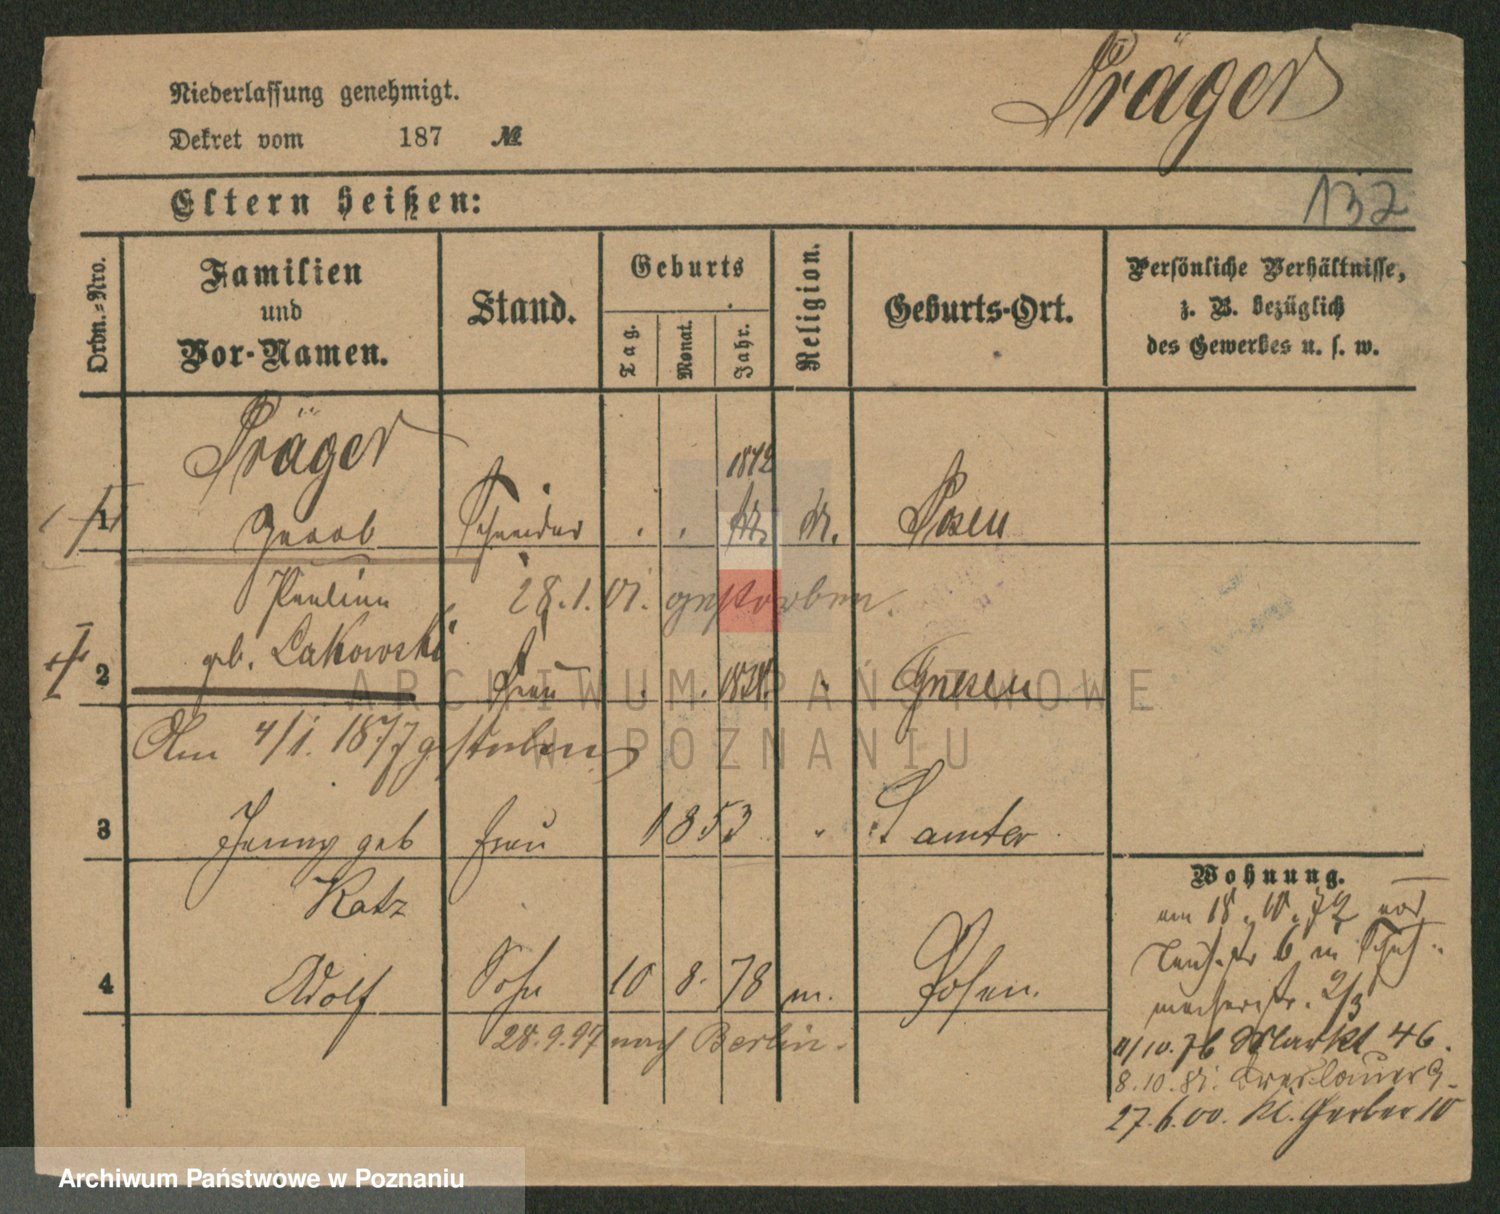 Präger
Niederlassung genehmigt.
Dekret vom 187 №
132
Eltern heißen:
Ordn.-Nro.
Familien
und
Vor-Namen.
Stand.
Geburts
Tag.
Monat.
Jahr.
Religion.
Geburts-Ort.
Persönliche Verhältnisse,
z. B. bezüglich
des Gewerbes u. s. w.
Präger
1 Jacob Schneider Posen
Pauline 28.1.01. gestorben.
2 geb. Lakowski Frau Gnesen
Am 4/1. 1877 gestorben
3 Jenny geb Frau 1853 " Samter
Katz
4 Adolf Sohn 10 8. 78 m. Posen.
28.9.97 nach Berlin.
Wohnung.
am 18. 10. 72 von
6 in Schuh-
macherstr. 2/3
11/10. 76 Markt 46.
8.10.81. Breslauer
27.6.00. Kl. Gerber 10
ARCHIWUM PAŃSTWOWE
W POZNANIU
Archiwum Państwowe w Poznaniu